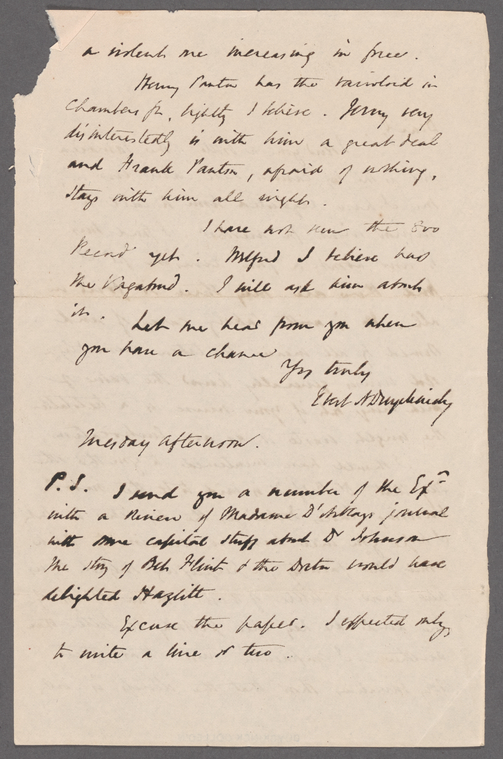 a violent one increasing in force.
Henry Panton has the varioloid in
Chambers St, lightly I believe. Jerry very
disinterestedly is with him a great deal
and Frank Panton, afraid of nothing,
stays with him all night.
I have not seen the 8vo
Record yet. I believe has
the Vagabond. I will ask him about
it. Let me hear from you when
you have a chance
Yrs truly
Evert A Duyckinck
Tuesday Afternoon.
P.S. I send you a number of the Exr
with a Review of Madame D'Arblays journal
with some capital stuff about Dr Johnson
The story of Bet Flint & the Doctor would have
delighted Hazlitt.
Excuse the paper. I expected only
to write a line or two.